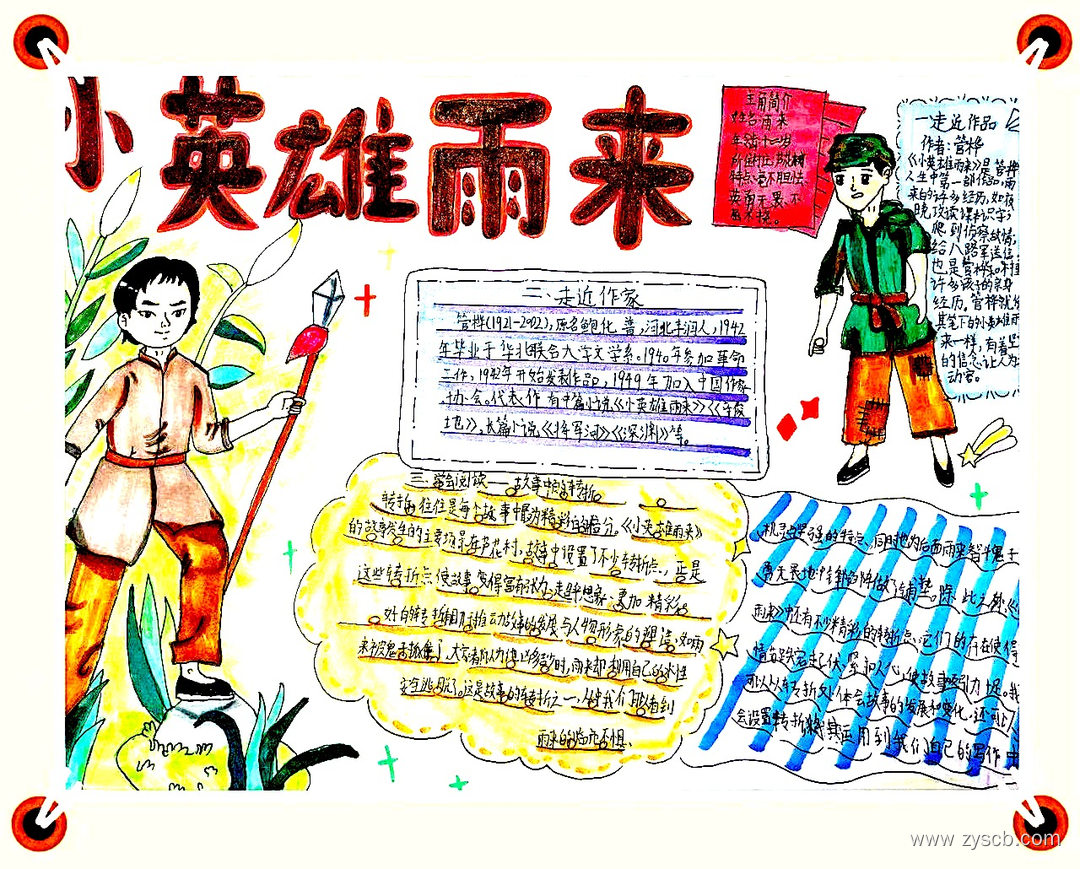 小英雄雨来
主角简介
姓名:雨来
年龄:十二岁
特点:毫不胆怯、
英勇无畏、不
屈不挠。
一走近作品
作者:管桦
《小英雄雨来》是管桦
人生中第一部作品,雨
来的许多经历,如夜
晚攻读课本识字,
爬到侦察敌情,
给八路军送信,
也是管桦和村里
许多孩子的亲身
经历。管桦就
其笔下的小英雄雨
来一样,有着坚
的信念让人为
动容。
二、走近作家
管桦(1921-2002),原名鲍化普,河北丰润人,1942
年毕业于华北联合大学文学系。1940年参加革命
工作,1942年开始发表作品,1949年加入中国作家
协会。代表作有中篇小说《小英雄雨来》
地》,长篇小说《将军河》《深渊》等。
三、学会阅读——故事中的转折
转折,往往是每个故事中最为精彩的部分。《小英雄雨来》
的故事发生的主要场景在芦花村,故事中设置了不少转折点,正是
这些转折点使故事变得富有张力,走笔思索,更加精彩。
好的转折相对推动故事的发展与人物形象的塑造,如雨
来被鬼子抓住了,大家都以为他凶多吉少时,雨来却利用自己的水性
安全逃脱了。这是故事的转折之一,从中我们可以看到
雨来的临危不惧、
机灵坚强的特点,同时也为后面雨来智斗鬼子
勇无畏地情节的作做了铺垫。除此之外《
雨来》中还有不少精彩的转折点,它们的存在使得
情节跌宕起伏、紧扣人心,使故事吸引力提。我
可以从转折处体会故事的发展和变化,还可以
会设置转折将其运用到我们自己的写作中
www.zyscb.com